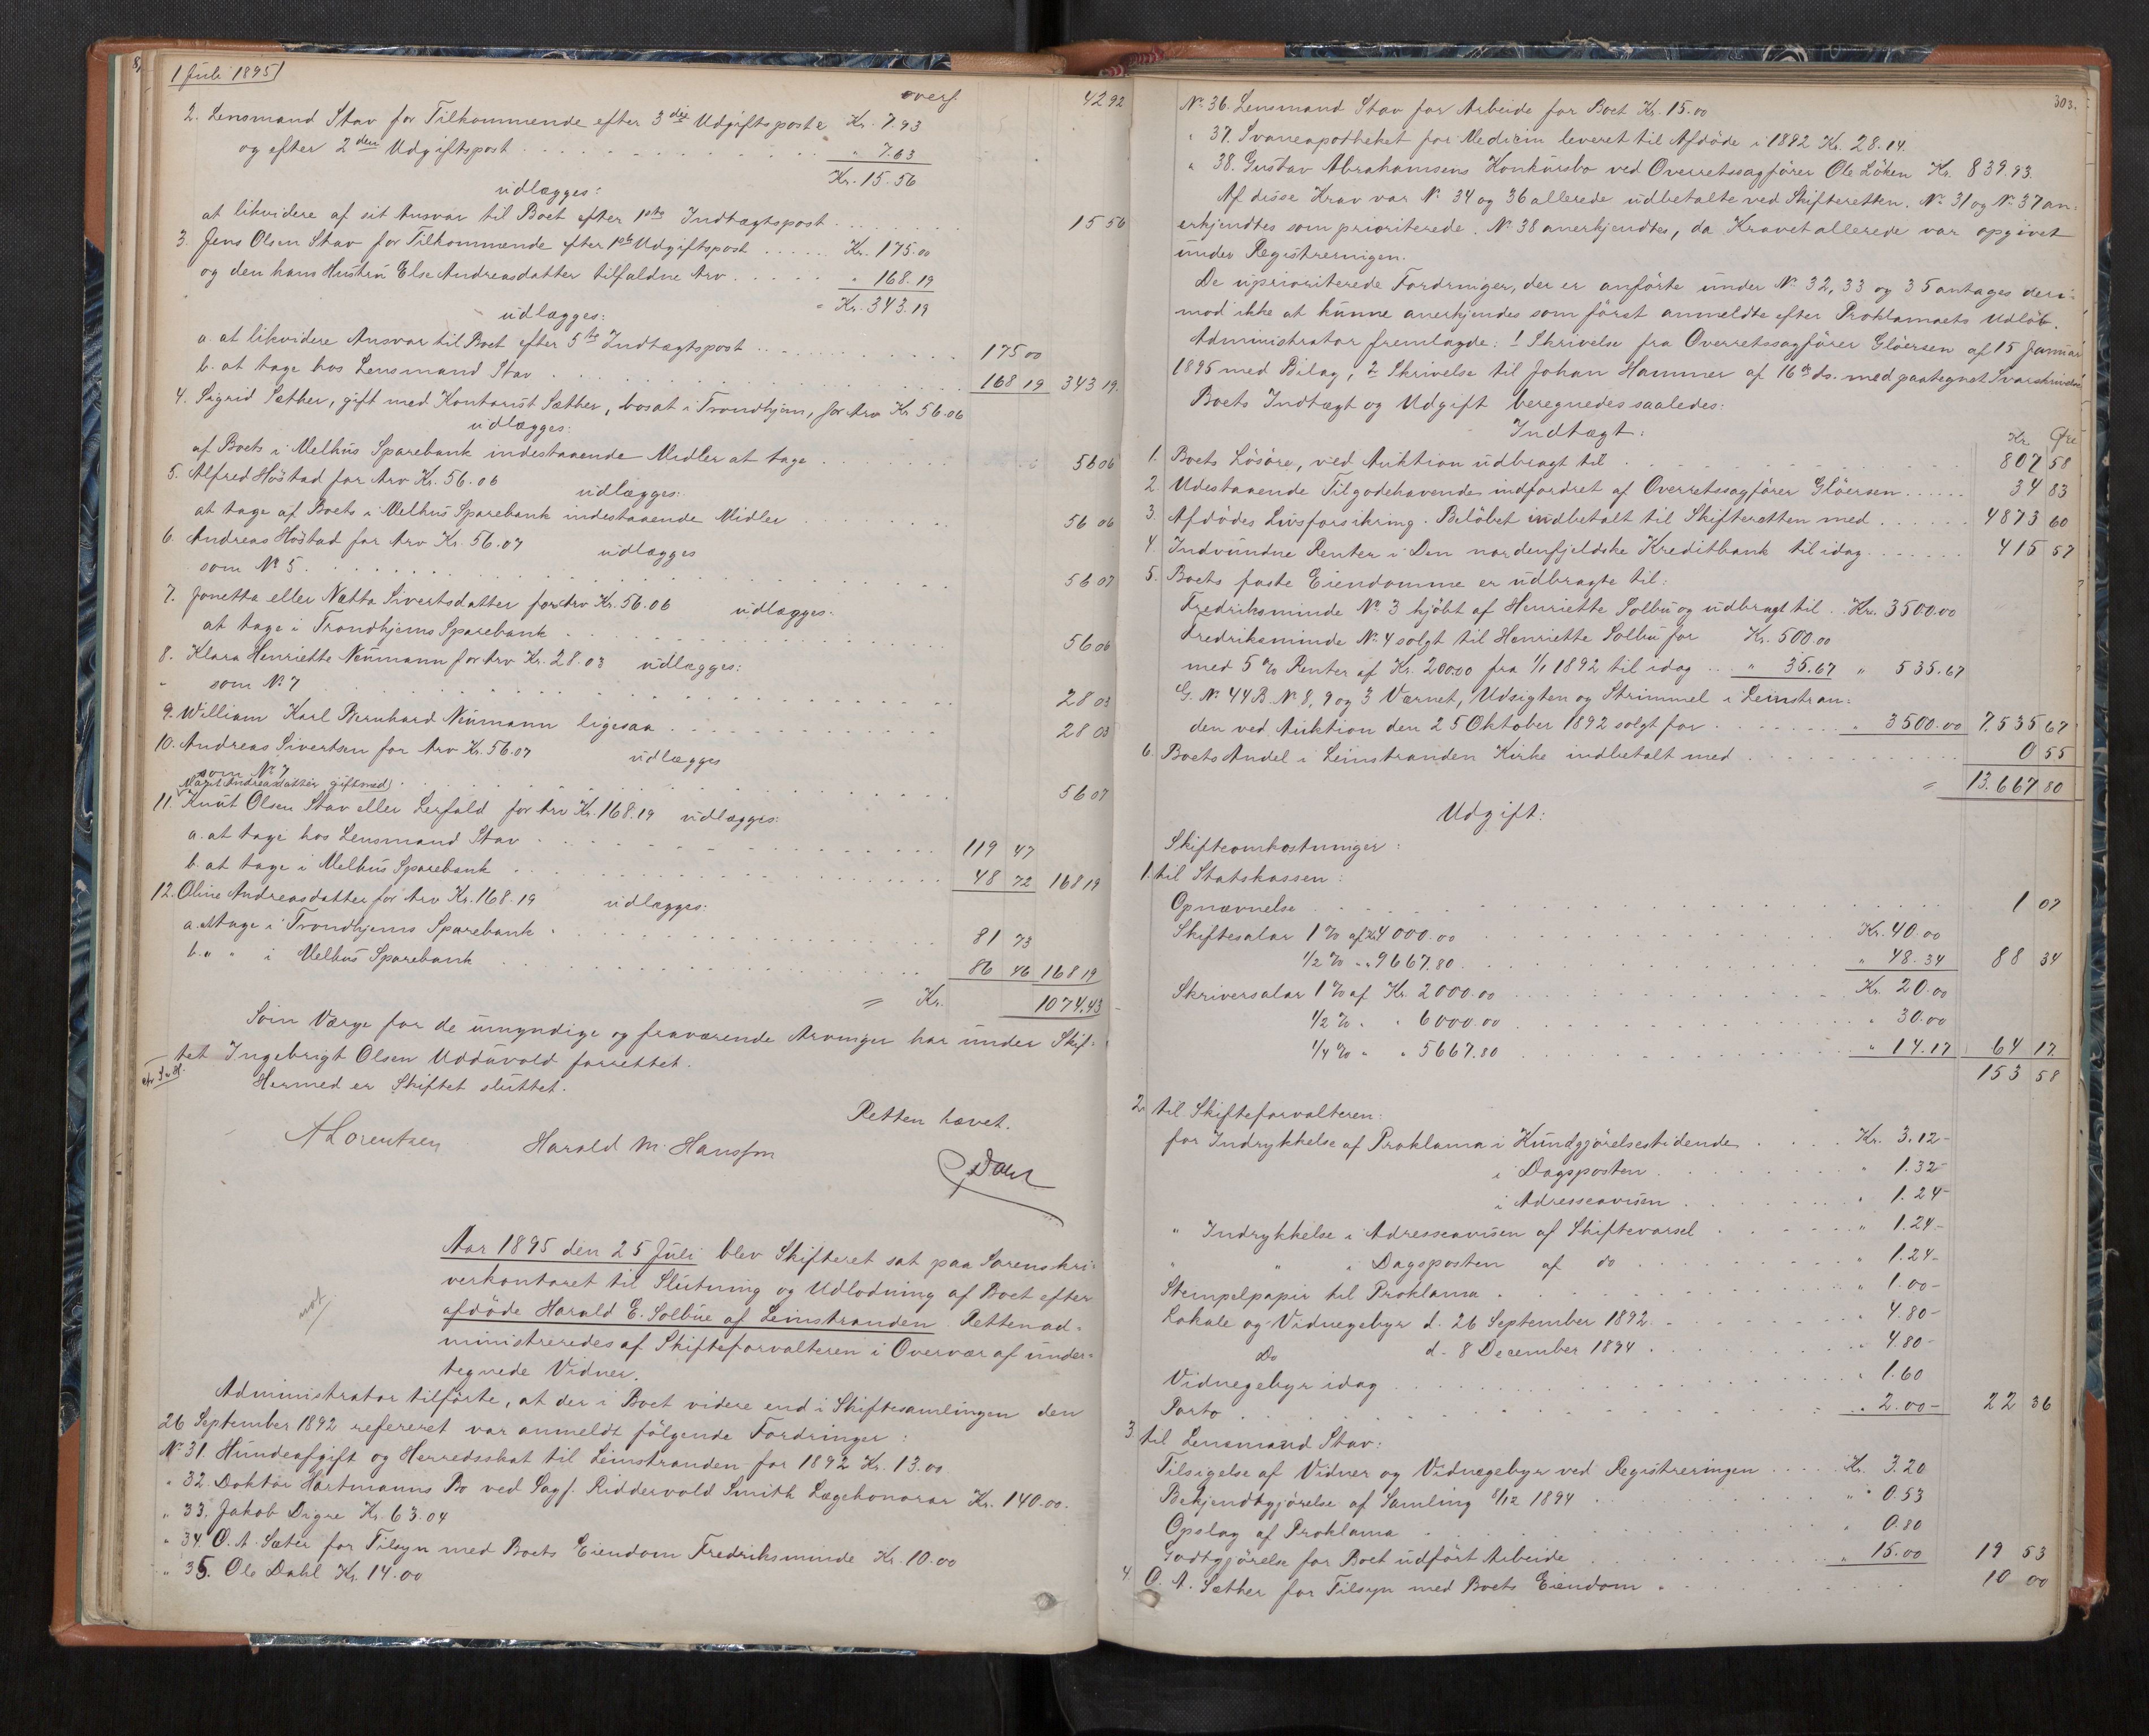 1 Juli 1895
overf. 42 92
2. Lensmand Stav for Tilkommende efter 3die Udgiftsposte Kr. 7.93
og efter 2den Udgiftspost . . . " 7.63
Kr. 15.56
udlægges:
at likvidere af sit Ansvar til Boet efter 1ste Indtægtspost . . . 15 56
3. Jens Olsen Stav for Tilkommende efter 1ste Udgiftspost . . . Kr. 175.00
og den hans Hustru Else Andreasdatter tilfaldne Arv . . . " 168.19
Kr. 343.19
udlægges:
a. at likvidere Ansvar til Boet efter 5te Indtægtspost . . . 175 00
b. at tage hos Lensmand Stav . . . 168 19 343 19.
4. Sigrid Sæther, gift med Kontorist Sæther, bosat i Trondhjem, for Arv Kr 56.06
udlægges:
af Boets i Melhus Sparebank indestaaende Midler at tage . . . 56 06
5. Alfred Höstad for Arv Kr. 56.06 udlægges:
at tage af Boets i Melhus Sparebank indestaaende Midler . . . 56 06
6. Andreas Höstad for Arv Kr. 56.07 udlægges
som No 5 . . . 56 07
7. Jonetta eller Netta Sivertsdatter for Arv Kr. 56.06 udlægges:
at tage i Trondhjems Sparebank . . . 56 06
8. Klara Henriette Neumann for Arv Kr. 28.03 udlægges:
som No 7 . . . 28 03
9. William Karl Bernhard Neumann ligesaa . . . 28 03
10. Andreas Sivertsen for Arv Kr. 56.07 udlægges
som No 7 . . . 56 07
Marit Andreasdatter gift med
11. Knut Olsen Stav eller Lerfald for Arv Kr. 168.19 udlægges:
a. at tage hos Lensmand Stav . . . 119 47
b. at tage i Melhus Sparebank . . . 48 72 168 19
12. Oline Andreasdatter for Arv Kr. 168.19 udlægges:
a. at tage i Trondhjems Sparebank . . . 81 73
b. " " i Melhus Sparebank . . . 86 46 168 19
= Kr. 1074.43
Som Værge for de umyndige og fraværende Arvinger har under Skif-
tet Ingebrigt Olsen Udduvold forrettet.
Hermed er Skiftet sluttet.
Retten hævet.
A Lorentzen Harald M. Hansson
Dahl
Aar 1895 den 25 Juli blev Skifteret sat paa Sorenskri-
verkontoret til Slutning og Udlodning af Boet efter
afdöde Harald E. Solbue af Leinstranden. Retten ad-
ministreredes af Skifteforvalteren i Overvær af under-
tegnede Vidner.
Administrator tilförte, at der i Boet videre end i Skiftesamlingen den
26 September 1892 refereret var anmeldt fölgende Fordringer:
No 31. Hundeafgift og Herredsskat til Leinstranden for 1892 Kr. 13.00
" 32. Doktor Hartmanns Bo ved Sagf. Riddervold Smith Lægehonorar Kr. 140.00.
" 33. Jakob Digre Kr. 63.04
" 34. O. A. Sæter for Tilsyn med Boets Eiendom Fredriksminde Kr. 10.00
" 35. Ole Dahl Kr. 14.00
303.
No 36. Lensmand Stav for Arbeide for Boet Kr. 15.00
" 37. Svaneapotheket for Medicin leveret til Afdöde i 1892 Kr. 28.14.
" 38. Gustav Abrahamsens Konkursbo ved Overretssagförer Ole Löken Kr. 839.93.
Af disse Krav var No 34 og 36 allerede udbetalte ved Skifteretten. No 31 og No 37 an-
erkjendtes som prioriterede. No 38 anerkjendtes, da Kravet allerede var opgivet
under Registreringen.
De uprioriterede Fordringer, der er anförte under No 32, 33 og 35 antages deri-
mod ikke at kunne anerkjendes som först anmeldte efter Proklamaets Udlöb.
Administrator fremlagde: 1 Skrivelse fra Overretssagförer Glöersen af 15 Januar
1895 med Bilag, 2 Skrivelse til Johan Hammer af 16de ds. med paategnet Svarskrivelse
Boets Indtægt og Udgift beregnedes saaledes:
Indtægt:
Kr. Øre
1. Boets Lösöre, ved Auktion udbragt til . . . 807 58
2. Udestaaende Tilgodehavende indfordret af Overretssagförer Glöersen . . . 34 83
3. Afdödes Livsforsikring. Belöbet indbetalt til Skifteretten med . . . 4873 60
4. Indvundne Renter i Den nordenfjeldske Kreditbank til idag . . . 415 57
5. Boets faste Eiendomme er udbragte til:
Fredriksminde No 3 kjöbt af Henriette Solbu og udbragt til . Kr. 3500.00
Fredriksminde No 4 solgt til Henriette Solbu for Kr. 500.00
med 5 % Renter af Kr. 200.00 fra 1/1 1892 til idag . . " 35.67 " 535.67
G. No 44 B. No 8, 9 og 3 Værnet, Udsigten og Strimmel i Leinstran-
den ved Auktion den 25 Oktober 1892 solgt for . . . " 3500.00 7,535 67
6. Boets Andel i Leinstranden Kirke indbetalt med . . . 0 55
= 13.667 80
Udgift:
Skifteomkostninger:
1. til Statskassen:
Opnævnelse . . . 1 07
Skiftesalar 1 % af Kr. 4000.00 . . . Kr. 40.00
1/2 % " " 9667.80 . . . " 48.34 88 34
Skriversalar 1 % af Kr. 2000.00 . . . Kr. 20.00
1/2 % " " 6000.00 . . . " 30.00
1/4 % " " 5667.80 . . . " 14.17 64 17
153 58
2. til Skifteforvalteren:
for Indrykkelse af Proklama i Kundgjörelsestidende . . . Kr. 3.12-
i Dagsposten . . . " 1.32-
i Adresseavisen . . . " 1.24-
" Indrykkelse i Adresseavisen af Skiftevarsel . . . " 1.24-
" " i Dagsposten af do . . . " 1.24-
Stempelpapir til Proklama . . . " 1.00-
Lokale og Vidnegebyr d. 26 September 1892 . . . " 4.80-
Do d. 8 December 1894 . . . " 4.80-
Vidnegebyr idag . . . " 1.60
Porto . . . " 2.00- 22 36
3. til Lensmand Stav:
Tilsigelse af Vidner og Vidnegebyr ved Registreringen . . . Kr. 3.20
Bekjendtgjörelse af Samling 8/12 1894 . . . " 0.53
Opslag af Proklama . . . " 0.80
Godtgjörelse for Boet udfört Arbeide . . . " 15.00 19 53
4. O. A. Sæther for Tilsyn med Boets Eiendom . . . 10 00